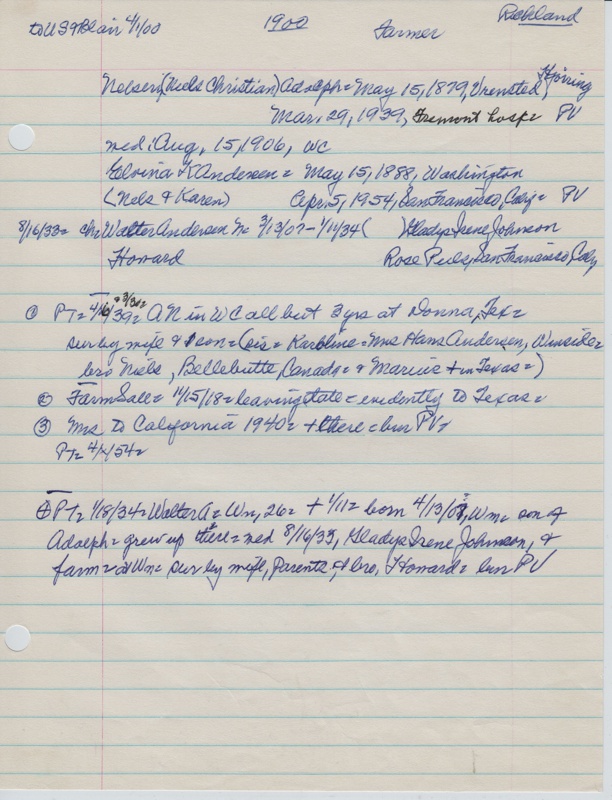 to US & Blair 4/1/00 1900 Farmer Richland
Nelsen, (Niels Christian) Adolph = May 15, 1879, Vrensted, Hjörring
Mar. 29, 1939, Fremont hosp = PV
med: Aug. 15, 1906, WC
Elvina K Andersen = May 15, 1888, Washington
(Nels & Karen) Apr. 5, 1954, San Francisco, Calif = PV
8/16/33 = ch = Walter Andersen N = 3/13/07 - 1/11/34 ( ) Gladys Irene Johnson
Howard Rose San Francisco, Calif
① PT = 4/6/39 = 3/30 = AN in WC all but 3 yrs at Donna, Tex =
sur by wife & 1 son = (sis = Karoline = Mrs Hans Andersen, Winside =
bro Niels, Bellebutte, Canada = & Marius + in Texas =)
② Farm Sale = 11/15/18 = leaving state = evidently to Texas =
③ Mrs to California 1940 = + there = bur PV =
PT = 4/ /54 =
④ PT = 1/18/34 = Walter A = Wn, 26 = + 1/11 = born 4/13/07, Wm = son of
Adolph = grew up there = med 8/16/33, Gladys Irene Johnson, &
farm = at Wn = sur by wife, Parents, & bro, Howard = bur PV